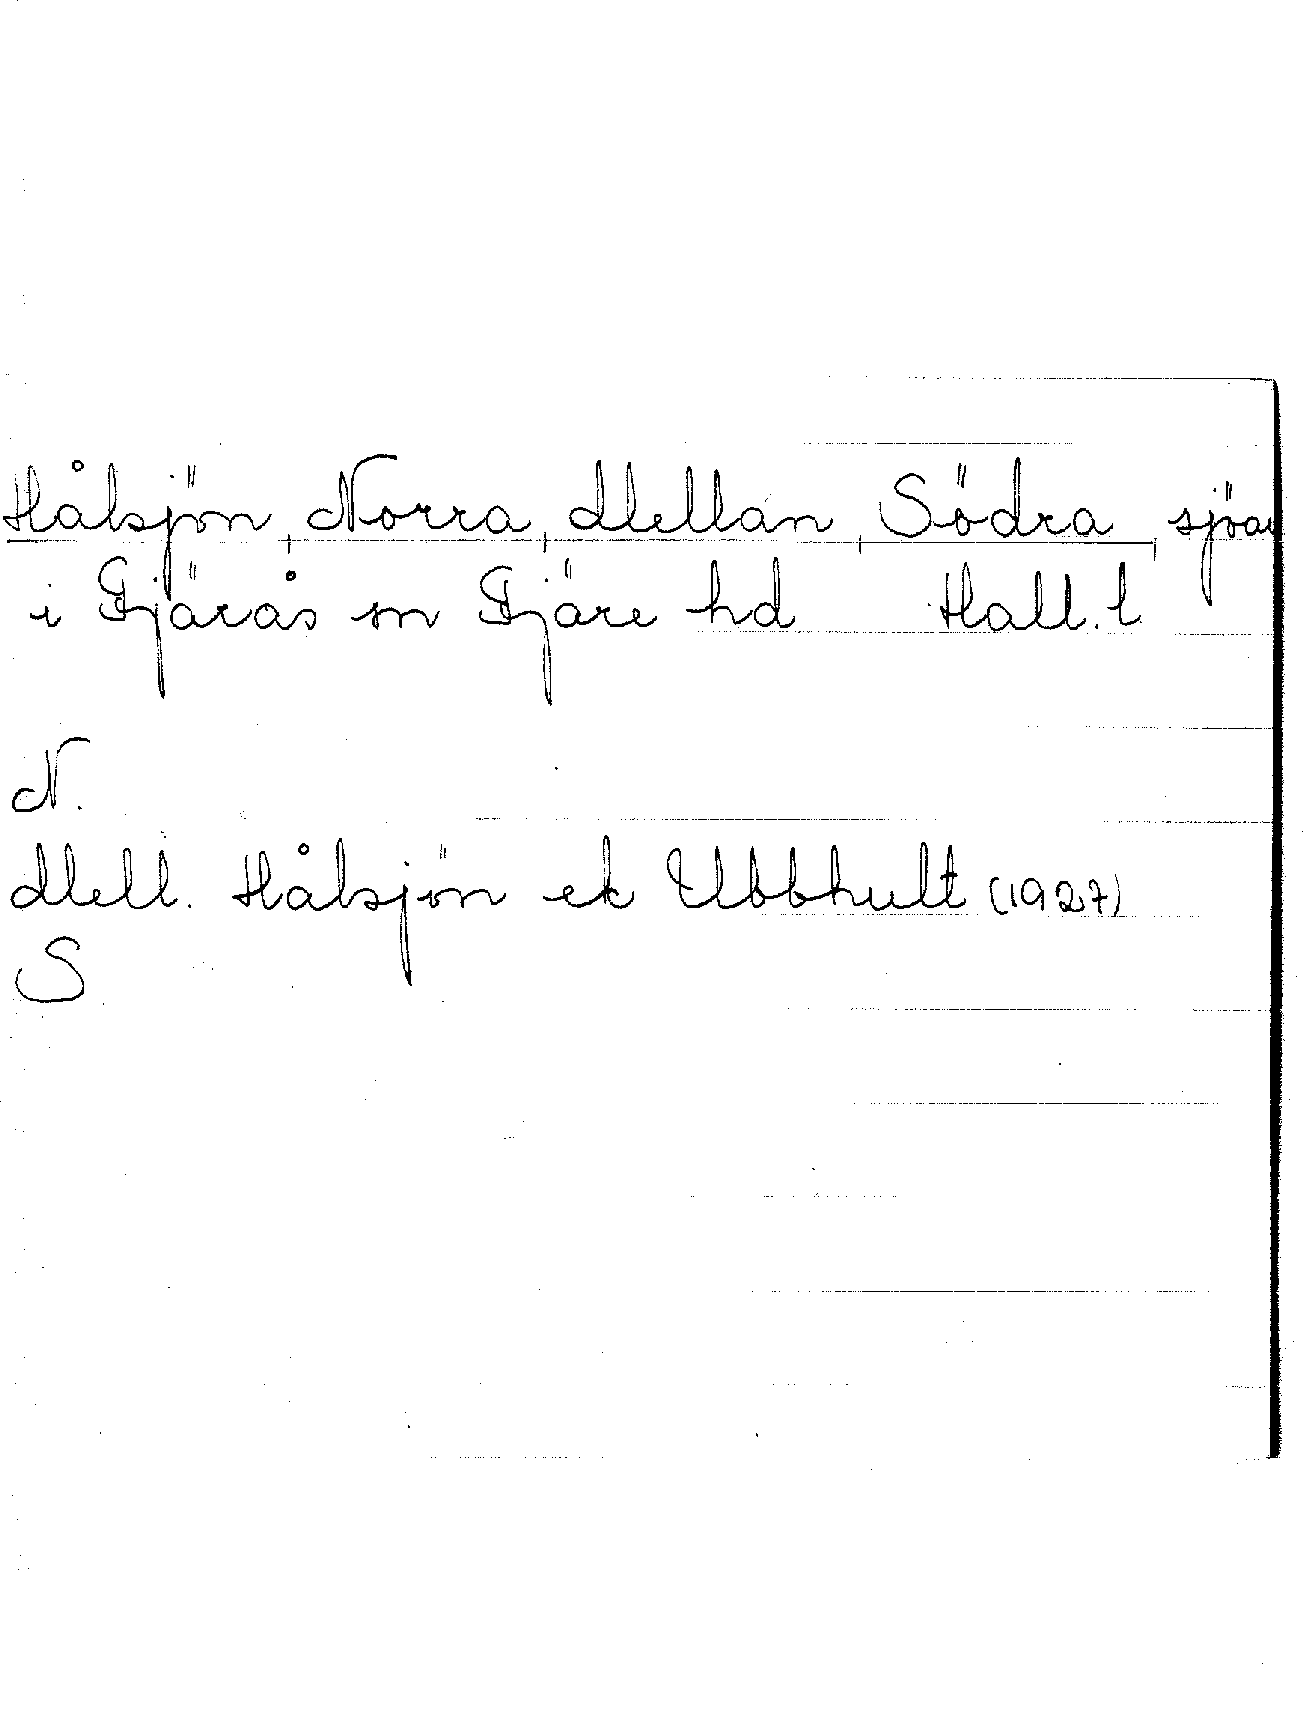 Hålsjön Norra Mellan Södra sjöar
i Fjärås sn Fjäre hd Hall. l
N.
Mell. Hålsjön ek Ubbhult (1927)
S